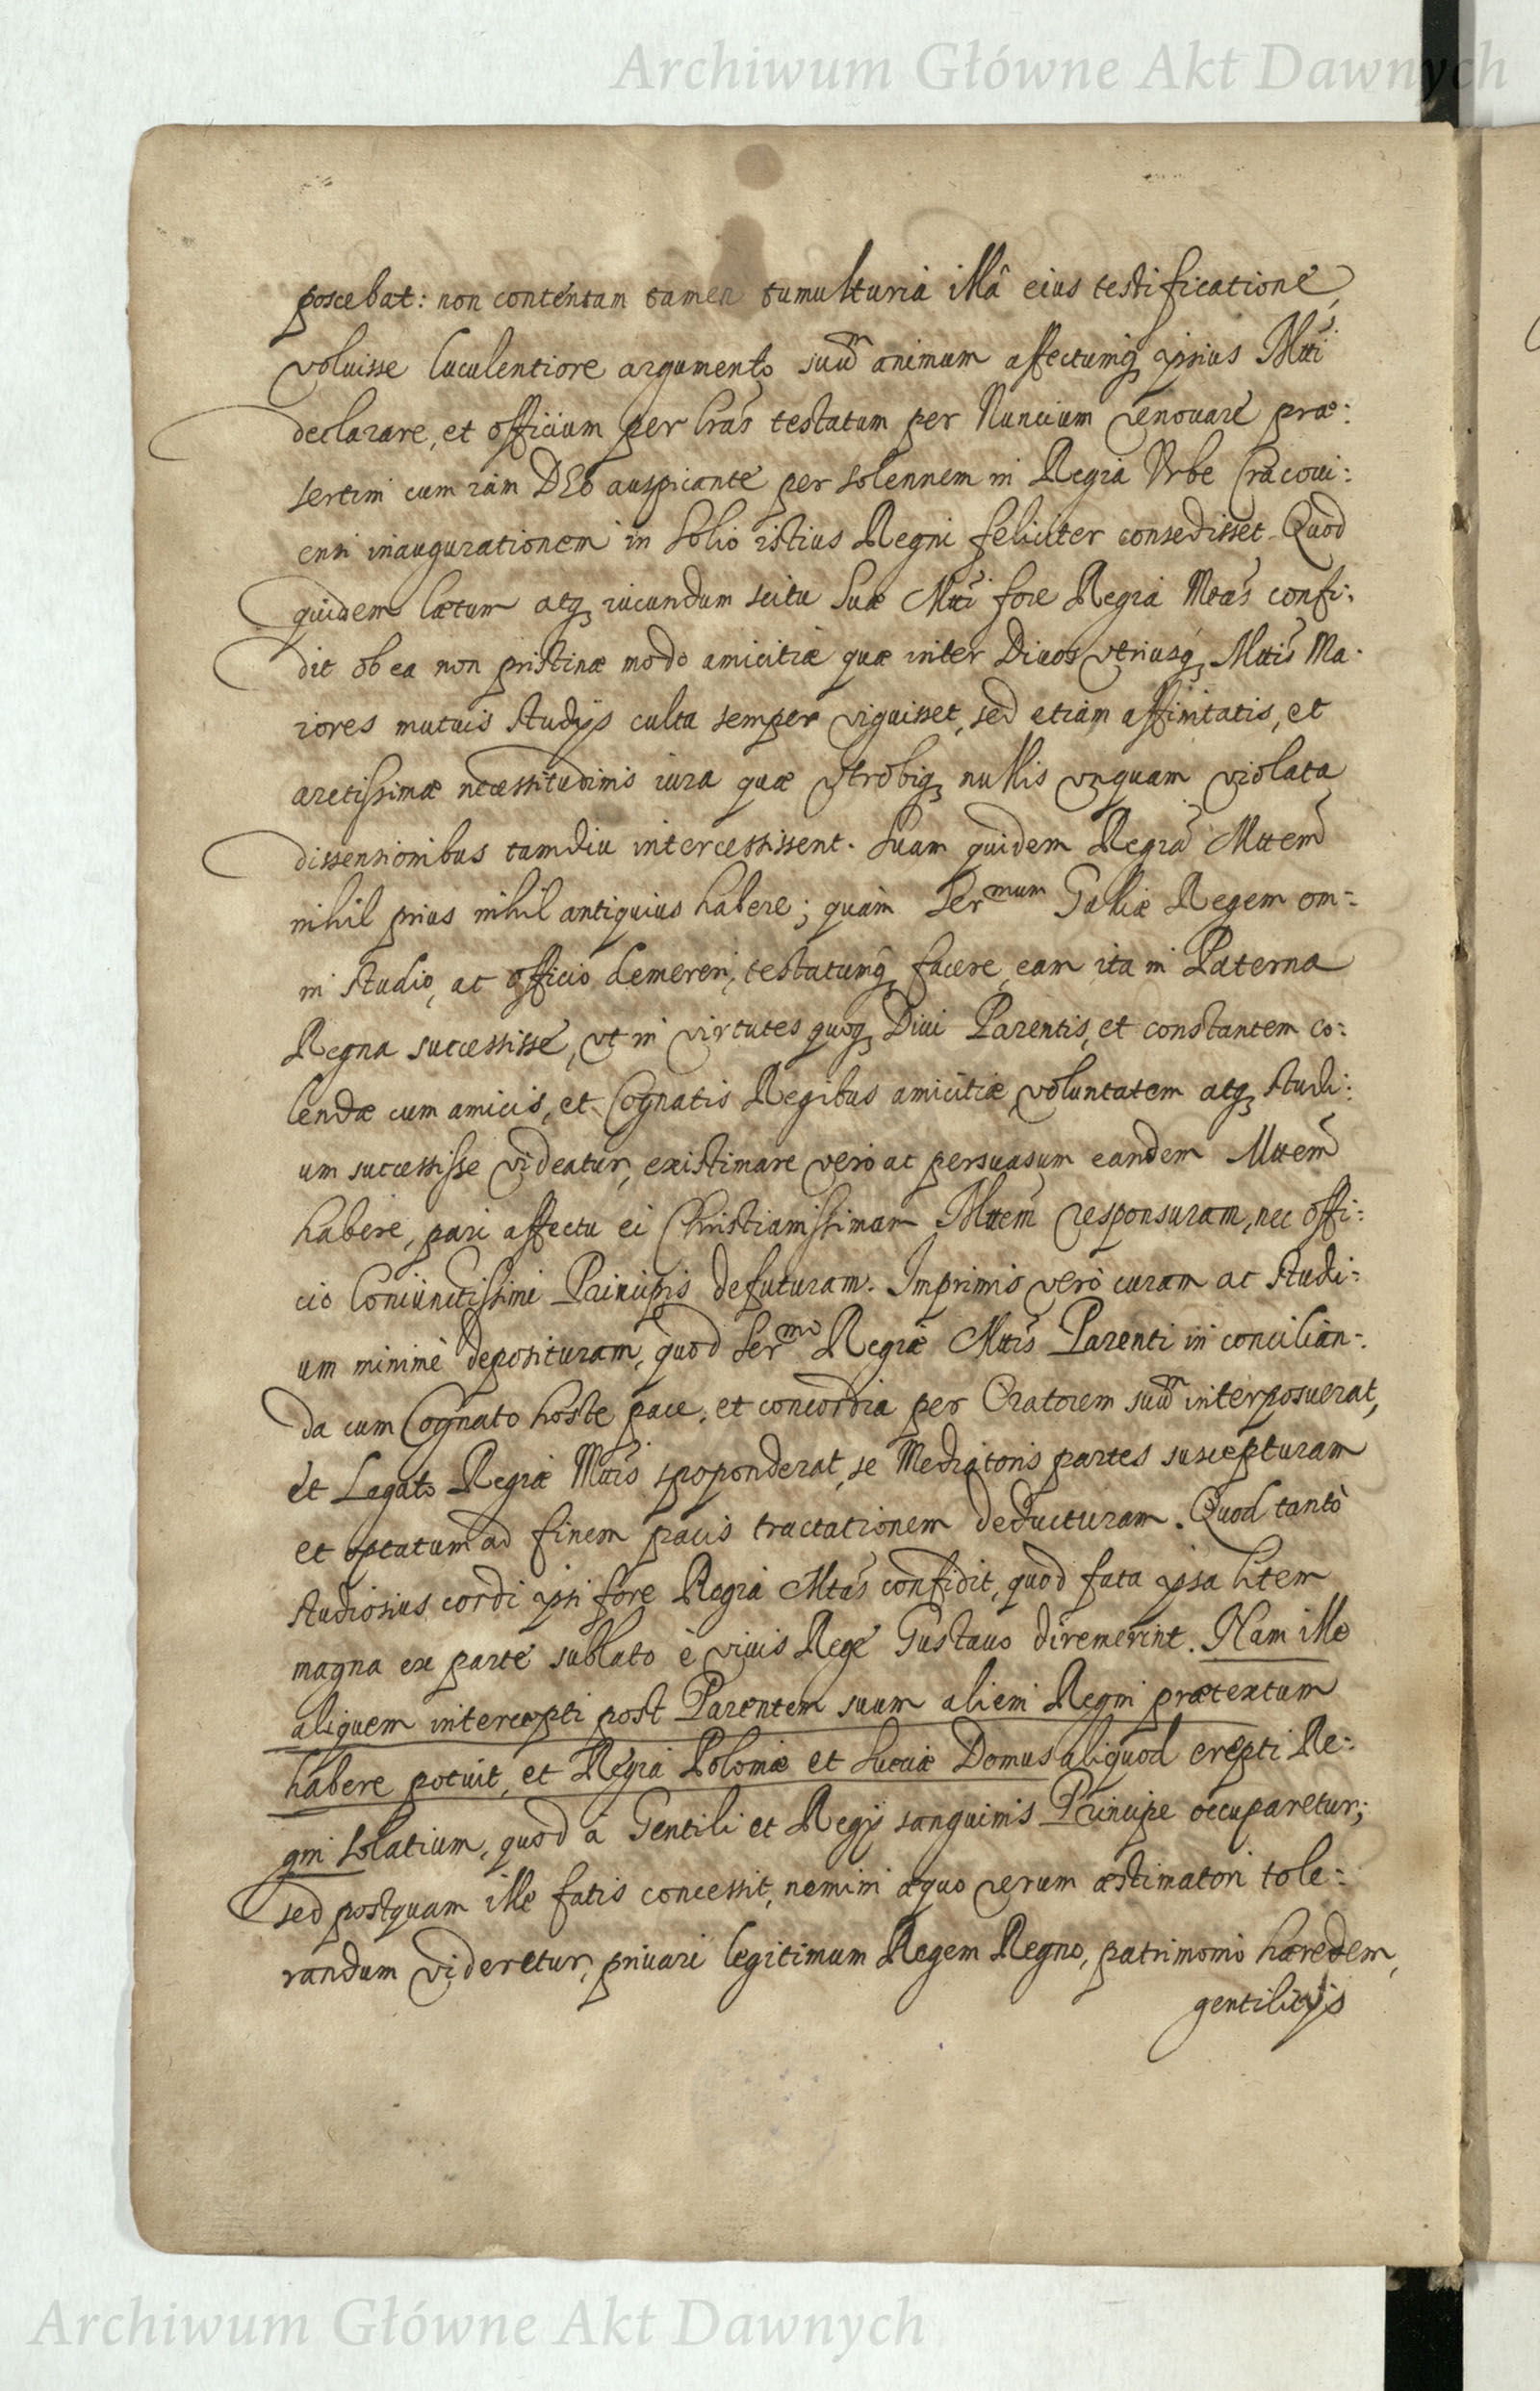 Archiwum Główne Akt Dawnych
poscebat: non contentam tamen tumulturiâ illâ eius testificatione,
voluisse luculentiore argumento suũ animum affectumq₃ ipsius Mtti
declarare, et officium per lrãs testatum per Nuncium renouare præ:
sertim cum iàm DEO auspicante per solennem in Regia Vrbe Cracoui:
ensi inaugurationem in Solio istius Regni feliciter consedisset. Quod
quidem lætum atq₃ iucundum scitu Suæ Mtti fore Regia Mtas confi:
dit ob ea non pristinæ modo amicitiæ quæ inter Diuos vtriusq₃ Mttis Ma:
iores mutuis studijs culta semper viguisset, sed etiàm affinitatis, et
arctissimæ necessitudinis iura quæ vtrobiq₃ nullis vnquam violata
dissensionibus tamdiu intercessissent. Suam quidem Regiã Mttem
nihil prius nihil antiquius habere; quàm Sermum Galliæ Regem om=
ni studio, ac officio demereri, testatumq₃ facere, eam ita in Paterna
Regna successisse, vt in virtutes quoq₃ Diui Parentis, et constantem co:
lendæ cum amicis, et Cognatis Regibus amicitiæ voluntatem atq₃ studi:
um successisse videatur, existimare vero ac persuasum eandem Mttem
habere, pari affectu ei Christianissimam Mttem responsuram, nec offi:
cio Coniunctissimi Principis defuturam. Imprimis verò curam ac studi=
um minimè deposituram, quod Sermo Regiæ Mttis Parenti in concilian:
da cum Cognato hoste pace, et concordia per Oratorem suũ interposuerat,
et Legato Regiæ Mttis spoponderat, se Mediatoris partes suscepturam
et optatum ad finem pacis tractationem deducturam. Quod tantò
studiosius cordi ipsi fore Regia Mtas confidit, quod fata ipsa litem
magna ex parte sublato è viuis Rege Gustauo diremerint. Nam ille
aliquem intercepti post Parentem suum alieni Regni prætextum
habere potuit, et Regia Poloniæ et Sueciæ Domus aliquod erepti Re=
gni solatium, quod à Gentili et Regij sanguinis Principe occuparetur;
sed postquam ille fatis concessit, nemini æquo rerum æstimatori tole:
randum videretur, priuari legitimum Regem Regno, patrimonio hæredem,
gentilicijs
Archiwum Główne Akt Dawnych